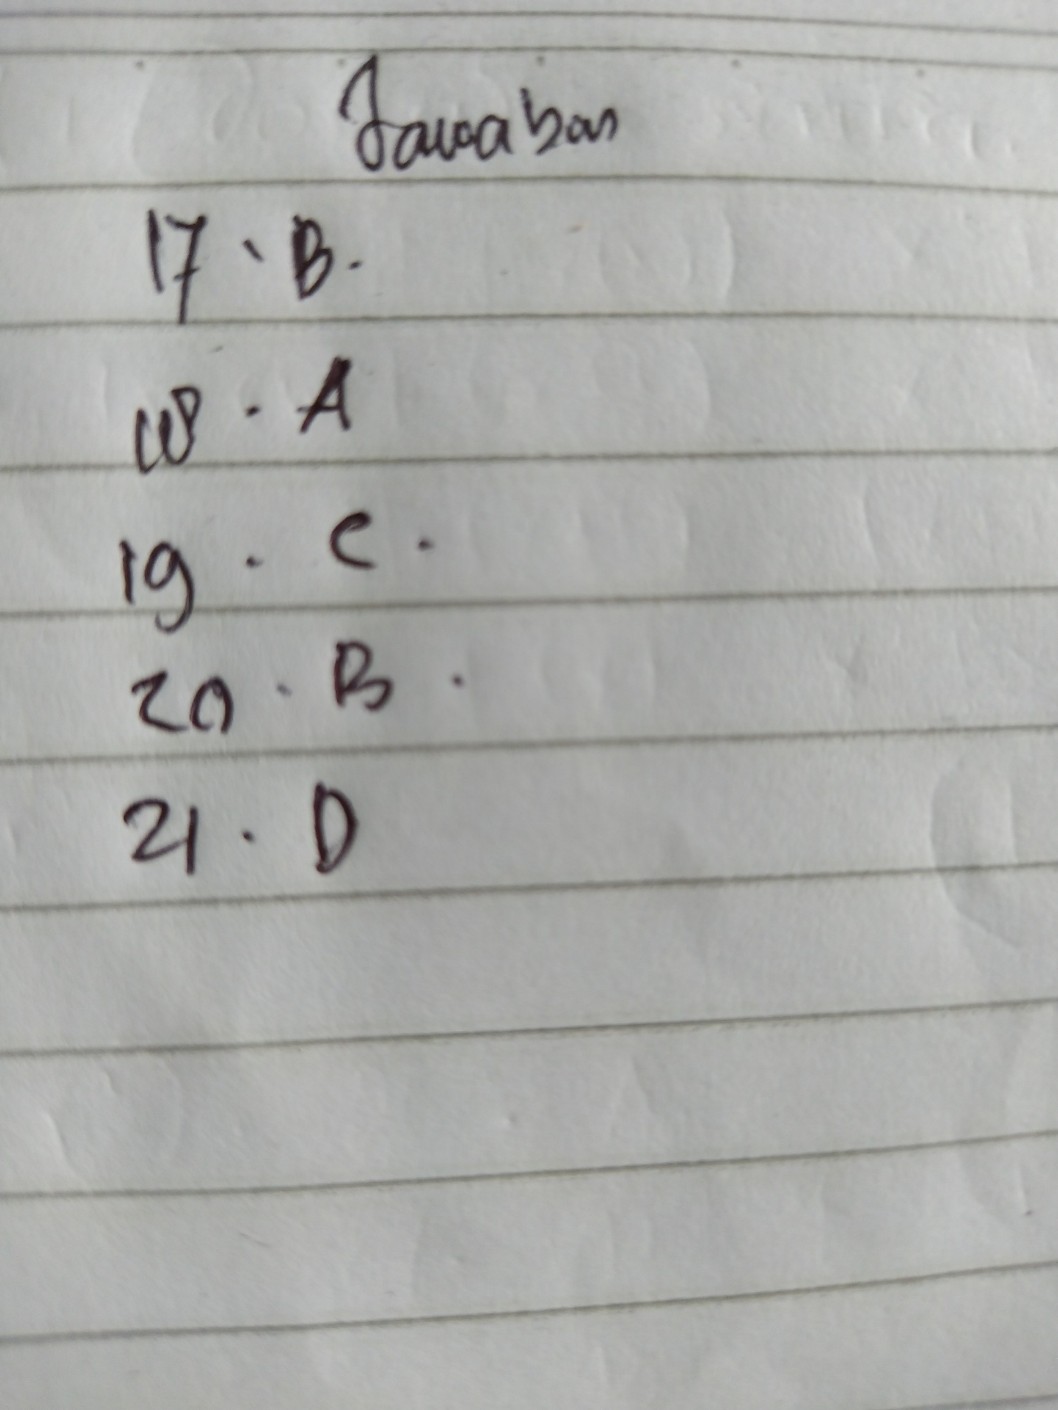 Jawaban
17. B.
18. A
19. C.
20. B.
21. D